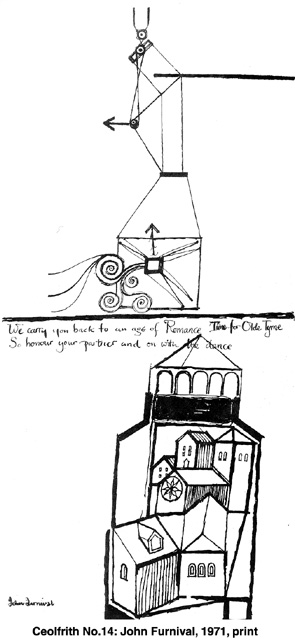 We carry you back to an age of Romance Time for Olde Tyme
So honour your partner and on with the dance
John Furnival
Ceolfrith No.14: John Furnival, 1971, print